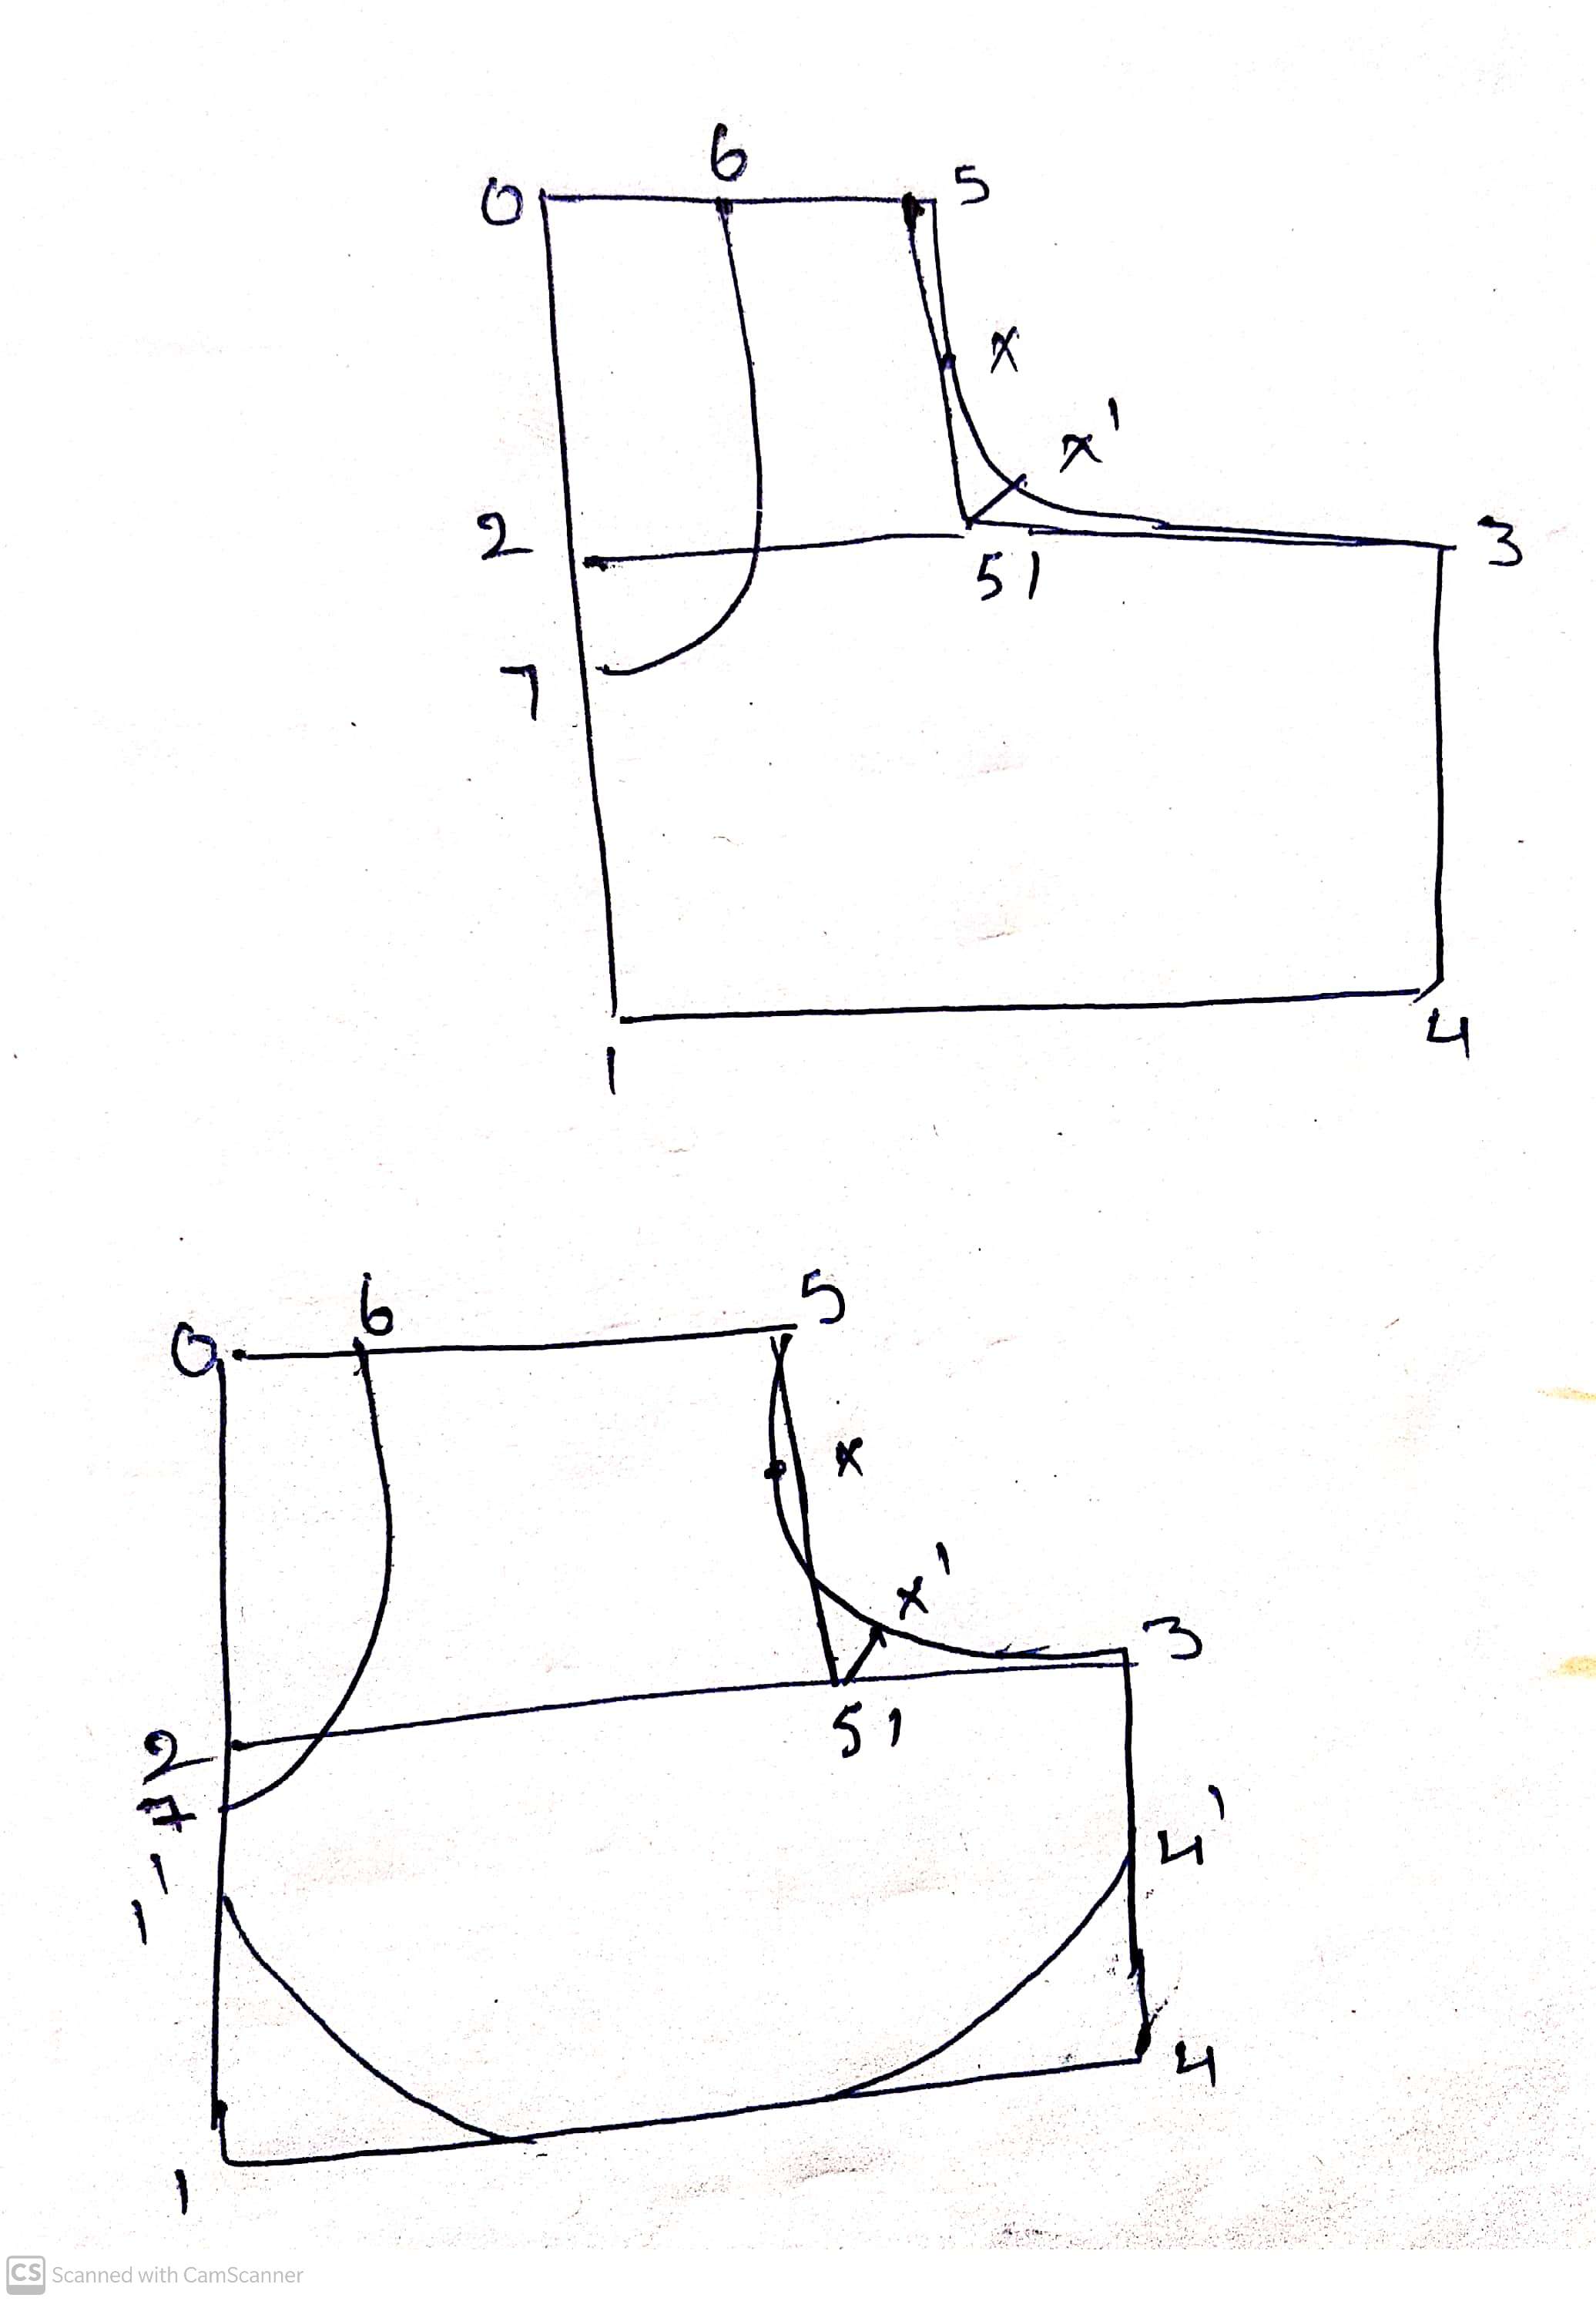 6
0 5
x
x'
2 3
51
7
4
1
6 5
0
x
x'
3
2 51
7
4'
1'
4
1
CS Scanned with CamScanner